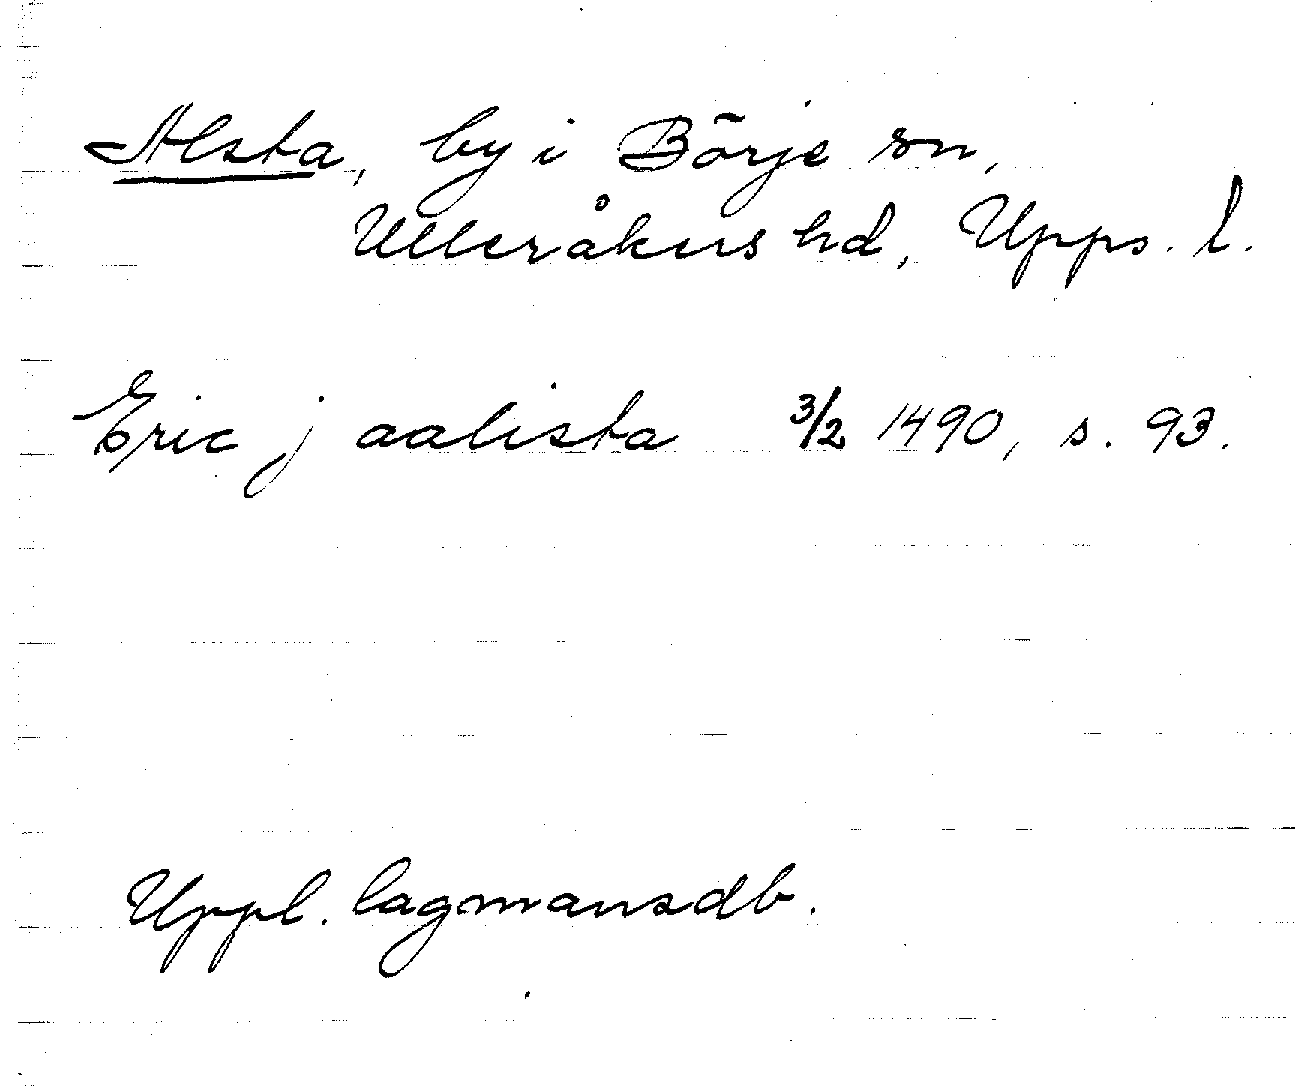 Alsta, by i Börje sn,
Ulleråkers hd, Upps. l.
Eric j aalista 3/2 1490, s. 93.
Uppl. lagmansdb.